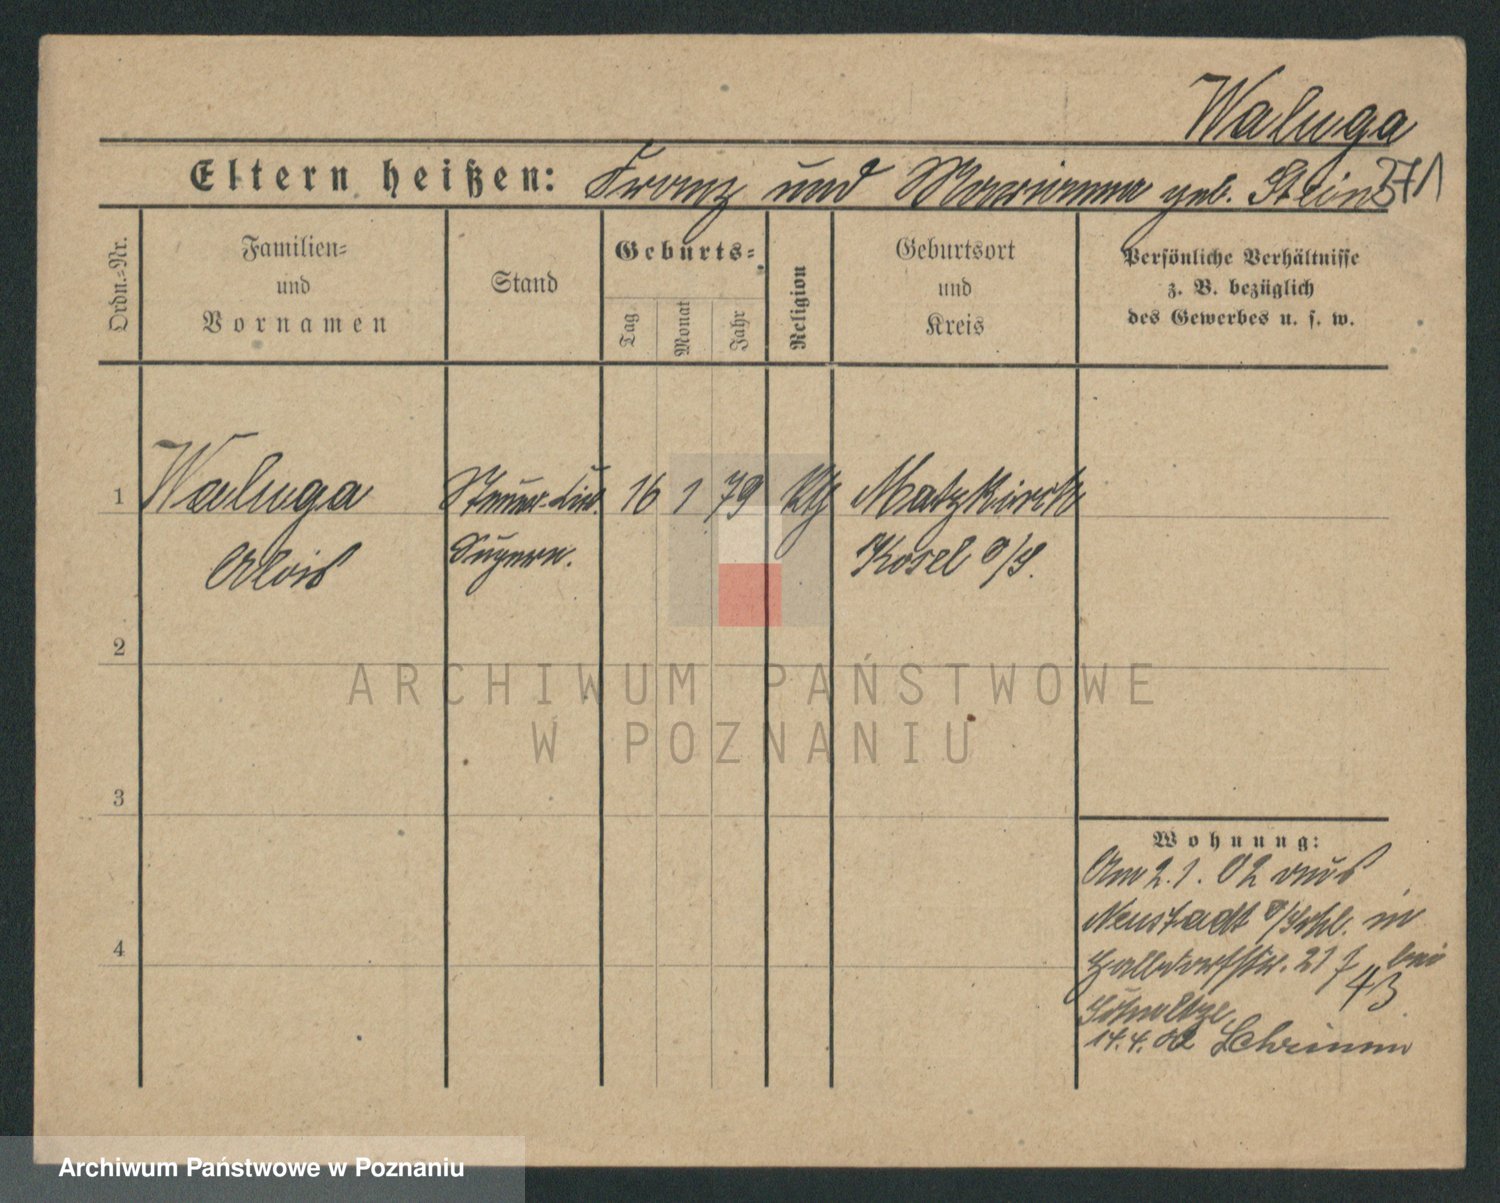 Waluga
Eltern heißen: Franz und Marianna geb. Stein
271
Ordn.=Nr.
Familien=
und
Vornamen
Stand
Geburts=
Tag
Monat
Jahr
Religion
Geburtsort
und
Kreis
Persönliche Verhältnisse
z. B. bezüglich
des Gewerbes u. s. w.
1 Waluga Steuer- 16 1 79 kth Matzkirch
Alois Supern. Kosel O/S.
2
3
4
Wohnung:
Am 2.1.02 aus
Neustadt O/Schl. in
Halbdorfstr. 21 bei
43
Scholtze
14.4.02 Schrimm
ARCHIWUM PAŃSTWOWE
W POZNANIU
Archiwum Państwowe w Poznaniu